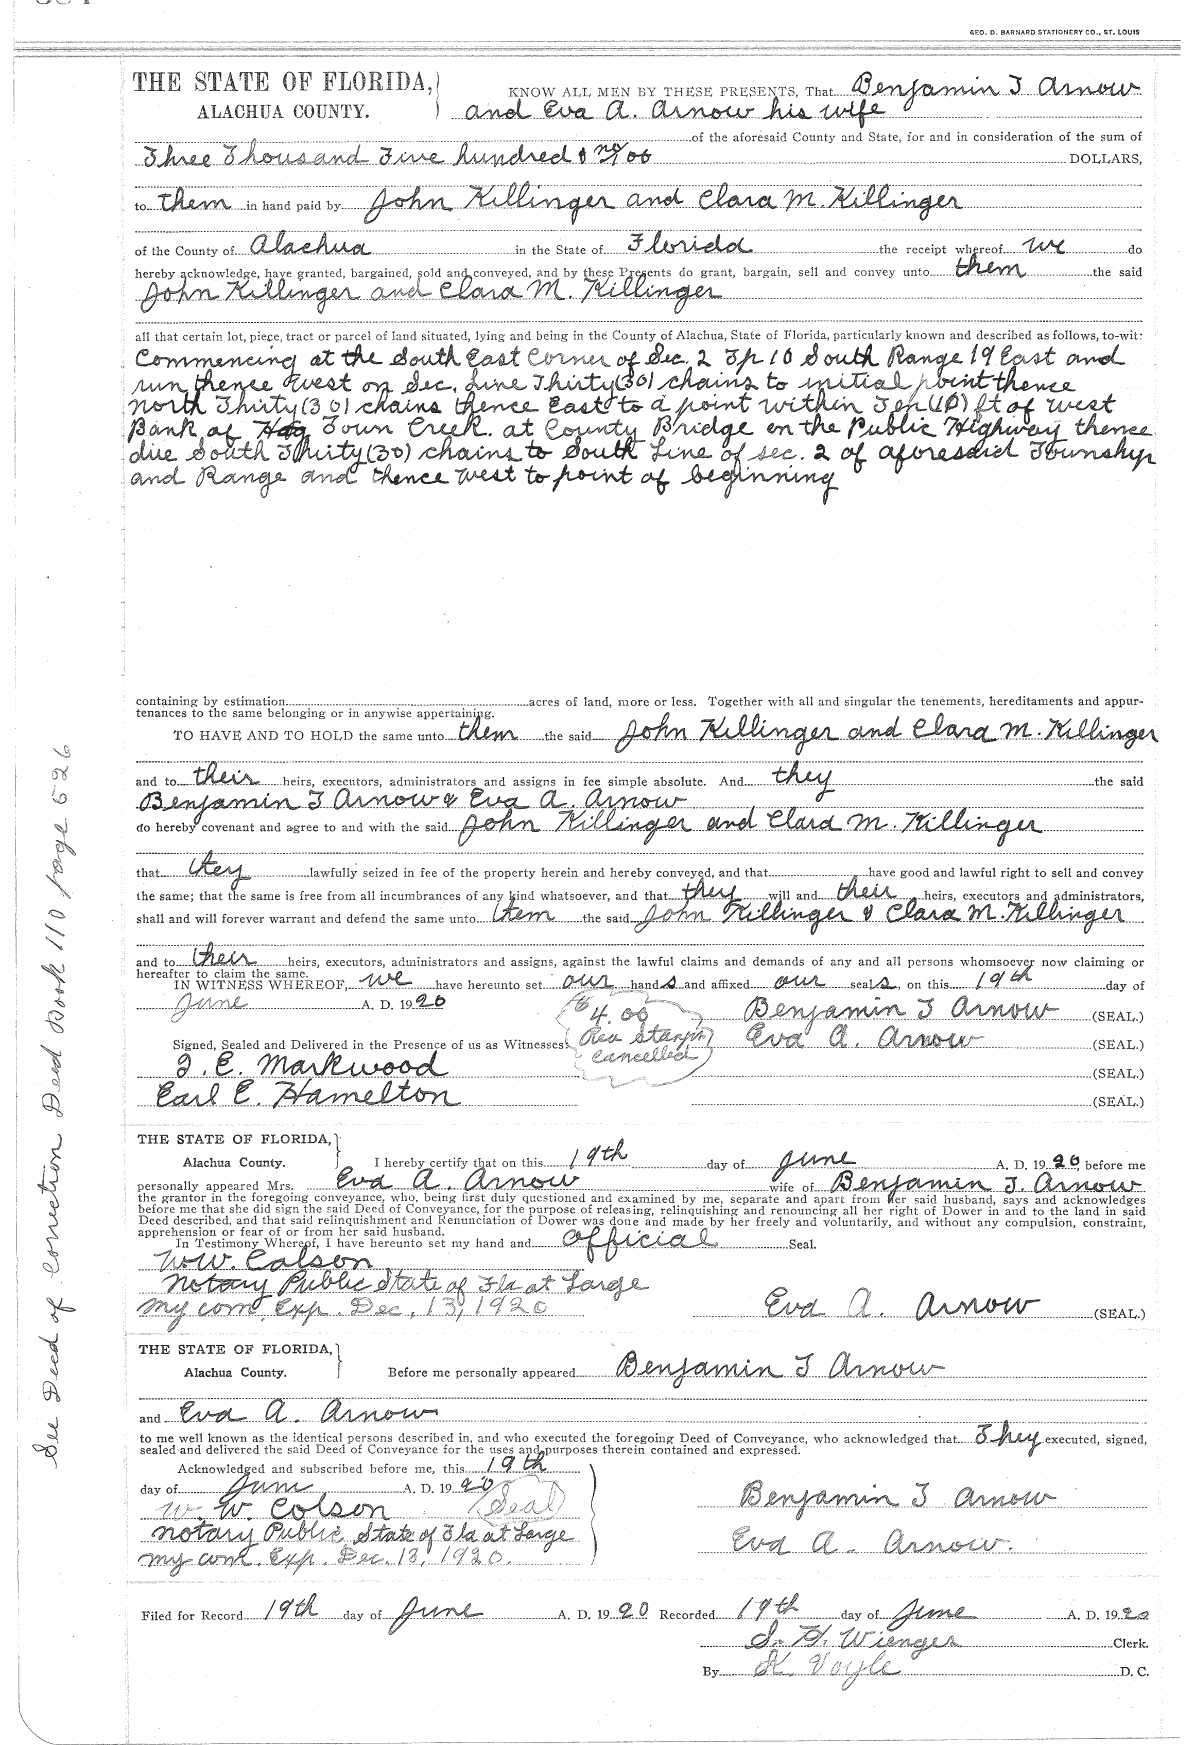 GEO. D. BARNARD STATIONERY CO., ST. LOUIS
THE STATE OF FLORIDA,
ALACHUA COUNTY.
KNOW ALL MEN BY THESE PRESENTS, That Benjamin T Arnow
and Eva A. Arnow his wife
of the aforesaid County and State, for and in consideration of the sum of
Three Thousand Five hundred & no/00 DOLLARS,
to them in hand paid by John Killinger and Clara M. Killinger
of the County of Alachua in the State of Florida the receipt whereof we do
hereby acknowledge, have granted, bargained, sold and conveyed, and by these Presents do grant, bargain, sell and convey unto them the said
John Killinger and Clara M. Killinger
all that certain lot, piece, tract or parcel of land situated, lying and being in the County of Alachua, State of Florida, particularly known and described as follows, to-wit:
Commencing at the South East Corner of Sec. 2 Tp 10 South Range 19 East and
run thence west on Sec. Line Thirty (30) chains to initial point thence
north Thirty (30) chains thence East to a point within Ten (10) ft of west
Bank of Hog Town Creek. at County Bridge on the Public Highway thence
due South Thirty (30) chains to South Line of sec. 2 of aforesaid Township
and Range and thence west to point of beginning
containing by estimation acres of land, more or less. Together with all and singular the tenements, hereditaments and appur-
tenances to the same belonging or in anywise appertaining.
TO HAVE AND TO HOLD the same unto them the said John Killinger and Clara M. Killinger
and to their heirs, executors, administrators and assigns in fee simple absolute. And they the said
Benjamin T Arnow & Eva A. Arnow
do hereby covenant and agree to and with the said John Killinger and Clara M. Killinger
that they lawfully seized in fee of the property herein and hereby conveyed, and that have good and lawful right to sell and convey
the same; that the same is free from all incumbrances of any kind whatsoever, and that they will and their heirs, executors and administrators,
shall and will forever warrant and defend the same unto them the said John Killinger & Clara M. Killinger
and to their heirs, executors, administrators and assigns, against the lawful claims and demands of any and all persons whomsoever now claiming or
hereafter to claim the same.
IN WITNESS WHEREOF, we have hereunto set our hands and affixed our seals, on this 19th day of
June A. D. 1920
$4.00
Rev Stamps
Cancelled
Benjamin T Arnow (SEAL.)
Signed, Sealed and Delivered in the Presence of us as Witnesses: Eva A. Arnow (SEAL.)
J. E. Markwood (SEAL.)
Earl E. Hamelton (SEAL.)
THE STATE OF FLORIDA,
Alachua County. I hereby certify that on this 19th day of June A. D. 1920, before me
personally appeared Mrs. Eva A. Arnow wife of Benjamin T. Arnow
the grantor in the foregoing conveyance, who, being first duly questioned and examined by me, separate and apart from her said husband, says and acknowledges
before me that she did sign the said Deed of Conveyance, for the purpose of releasing, relinquishing and renouncing all her right of Dower in and to the land in said
Deed described, and that said relinquishment and Renunciation of Dower was done and made by her freely and voluntarily, and without any compulsion, constraint,
apprehension or fear of or from her said husband.
In Testimony Whereof, I have hereunto set my hand and official Seal.
W.W. Colson
Notary Public State of Fla at Large
my com. Exp. Dec, 13, 1920 Eva A. Arnow (SEAL.)
THE STATE OF FLORIDA,
Alachua County. Before me personally appeared Benjamin T Arnow
and Eva A. Arnow
to me well known as the identical persons described in, and who executed the foregoing Deed of Conveyance, who acknowledged that They executed, signed,
sealed and delivered the said Deed of Conveyance for the uses and purposes therein contained and expressed.
Acknowledged and subscribed before me, this 19th
day of June A. D. 1920
W. W. Colson Seal Benjamin T Arnow
Notary Public State of Fla at Large
my com. Exp. Dec. 13, 1920. Eva A. Arnow.
Filed for Record 19th day of June A. D. 1920 Recorded 19th day of June A. D. 1920
S. H. Wienges Clerk.
By K. Voyle D. C.
See Deed of Correction Deed Book 110 page 526